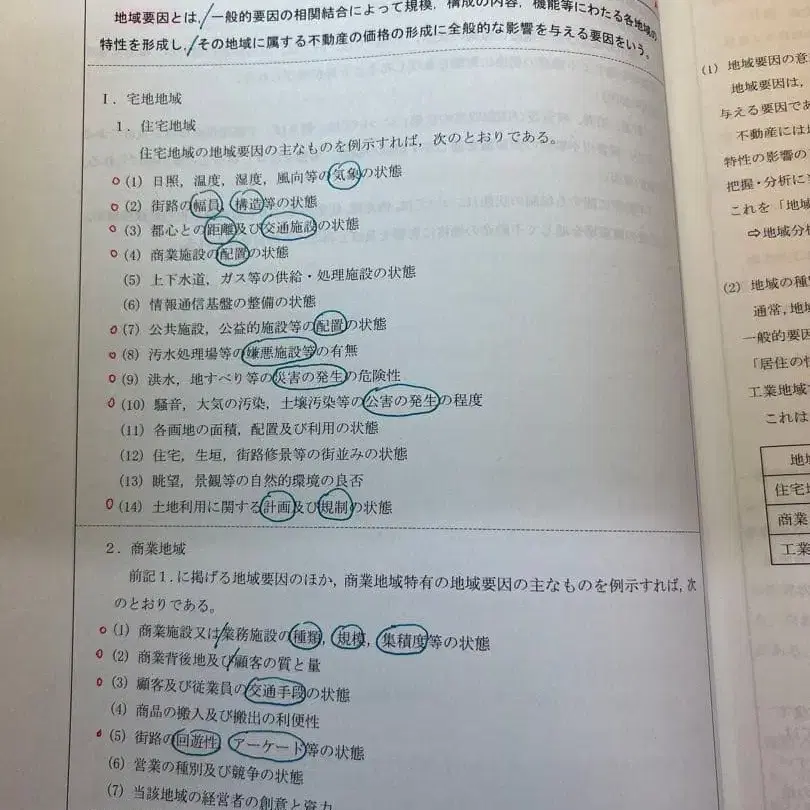 地域要因とは,／一般的要因の相関結合によって規模,構成の内容,機能等にわたる各地域の
特性を形成し,／その地域に属する不動産の価格の形成に全般的な影響を与える要因をいう。
Ⅰ.宅地地域
1.住宅地域
住宅地域の地域要因の主なものを例示すれば,次のとおりである。
(1) 日照,温度,湿度,風向等の気象の状態
(2) 街路の幅員,構造等の状態
(3) 都心との距離及び交通施設の状態
(4) 商業施設の配置の状態
(5) 上下水道,ガス等の供給・処理施設の状態
(6) 情報通信基盤の整備の状態
(7) 公共施設,公益的施設等の配置の状態
(8) 汚水処理場等の嫌悪施設等の有無
(9) 洪水,地すべり等の災害の発生の危険性
(10) 騒音,大気の汚染,土壌汚染等の公害の発生の程度
(11) 各画地の面積,配置及び利用の状態
(12) 住宅,生垣,街路修景等の街並みの状態
(13) 眺望,景観等の自然的環境の良否
(14) 土地利用に関する計画及び規制の状態
2.商業地域
前記1.に掲げる地域要因のほか,商業地域特有の地域要因の主なものを例示すれば,次
のとおりである。
(1) 商業施設又は/業務施設の種類,規模,集積度等の状態
(2) 商業背後地及び/顧客の質と量
(3) 顧客及び従業員の交通手段の状態
(4) 商品の搬入及び搬出の利便性
(5) 街路の回遊性,アーケード等の状態
(6) 営業の種別及び競争の状態
(7) 当該地域の経営者の創意と資力
(1) 地域要因の意
地域要因は,
与える要因であ
不動産には
特性の影響の
把握・分析に
これを「地域
⇨地域分
(2) 地域の種
通常,地域
一般的要因
「居住の
工業地域
これは
地域
住宅地
商業
工業